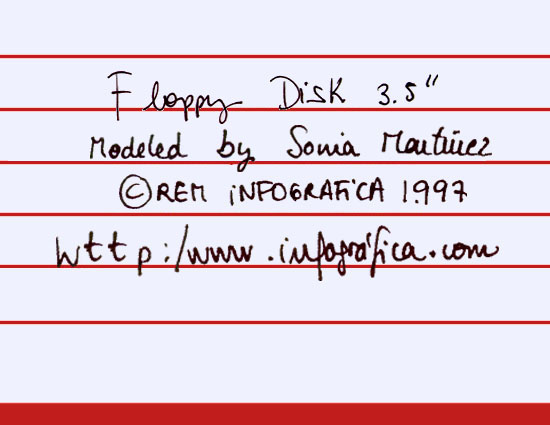 Floppy Disk 3.5"
Modeled by Sonia Martínez
©REM iNFOGRAFiCA 1997
http:/www.infográfica.com